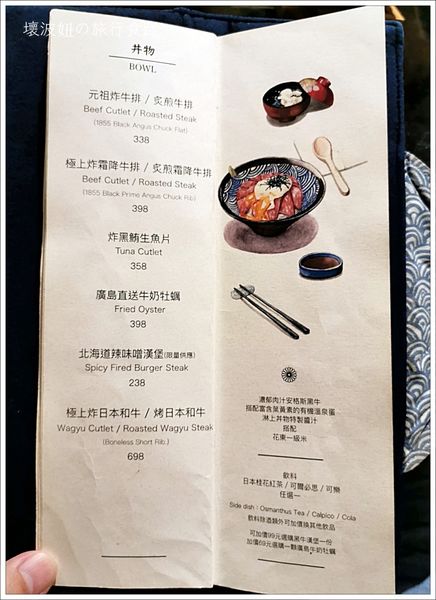 壞波妞の旅行食記
丼物
BOWL
元祖炸牛排 / 炙煎牛排
Beef Cutlet / Roasted Steak
(1855 Black Angus Chuck Flat)
338
極上炸霜降牛排 / 炙煎霜降牛排
Beef Cutlet / Roasted Steak
(1855 Black Prime Angus Chuck Rib)
398
炸黑鮪生魚片
Tuna Cutlet
358
廣島直送牛奶牡蠣
Fried Oyster
398
北海道辣味噌漢堡(限量供應)
Spicy Fired Burger Steak
238
極上炸日本和牛 / 烤日本和牛
Wagyu Cutlet / Roasted Wagyu Steak
(Boneless Short Rib.)
698
濃郁肉汁安格斯黑牛
搭配富含葉黃素的有機溫泉蛋
淋上丼物特製醬汁
搭配
花東一級米
飲料
日本桂花紅茶 / 可爾必思 / 可樂
任選一
Side dish : Osmanthus Tea / Calpico / Cola
飲料除酒類外可加價換其他飲品
可加價99元選購黑牛漢堡一份
加價69元選購一顆廣島牛奶牡蠣